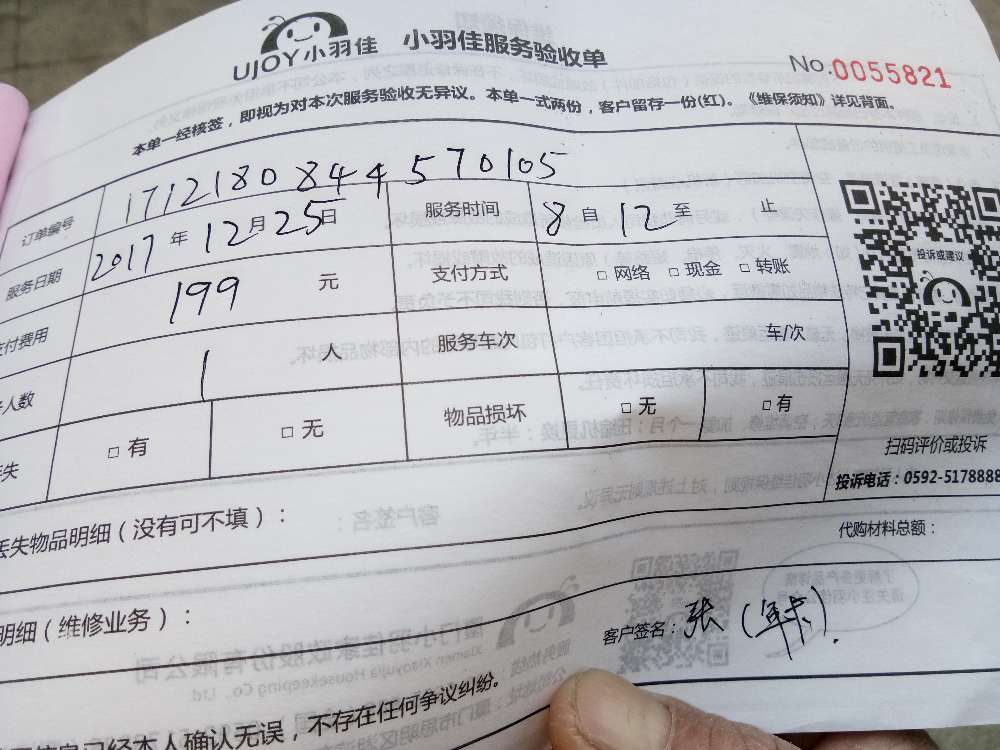 UJOY小羽佳 小羽佳服务验收单
No.0055821
本单一经核签，即视为对本次服务验收无异议。本单一式两份，客户留存一份(红)。《维保须知》详见背面。
订单编号 1712180844570105
服务日期 2017年12月25日 服务时间 8自12至 止
付费用 199 元 支付方式 □网络 □现金 □转账
人数 1 人 服务车次 车/次
失 □有 □无 物品损坏 □无 □有
投诉或建议
扫码评价或投诉
投诉电话：0592-5178888
丢失物品明细（没有可不填）：
代购材料总额：
明细（维修业务）：
客户签名：张（年卡）.
信息已经本人确认无误，不存在任何争议纠纷。